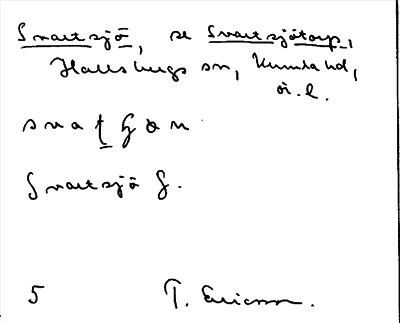 Svartsjö, se Svartsjötorp,
Hallsbergs sn, Kumla hd,
ö. l.
Svartsjö g.
5 T. Ericsson.